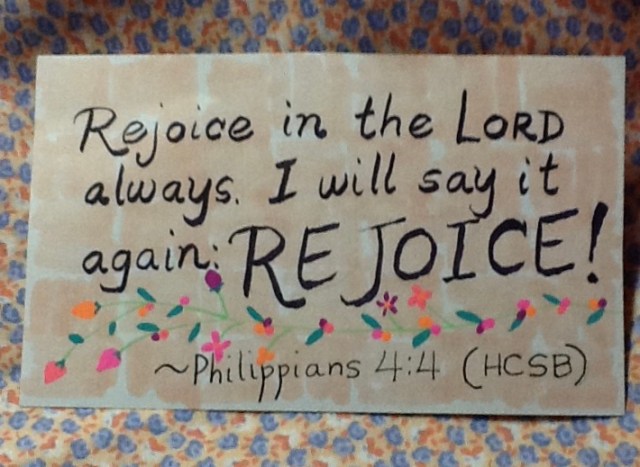 Rejoice in the LORD
always. I will say it
again: REJOICE!
~Philippians 4:4 (HCSB)